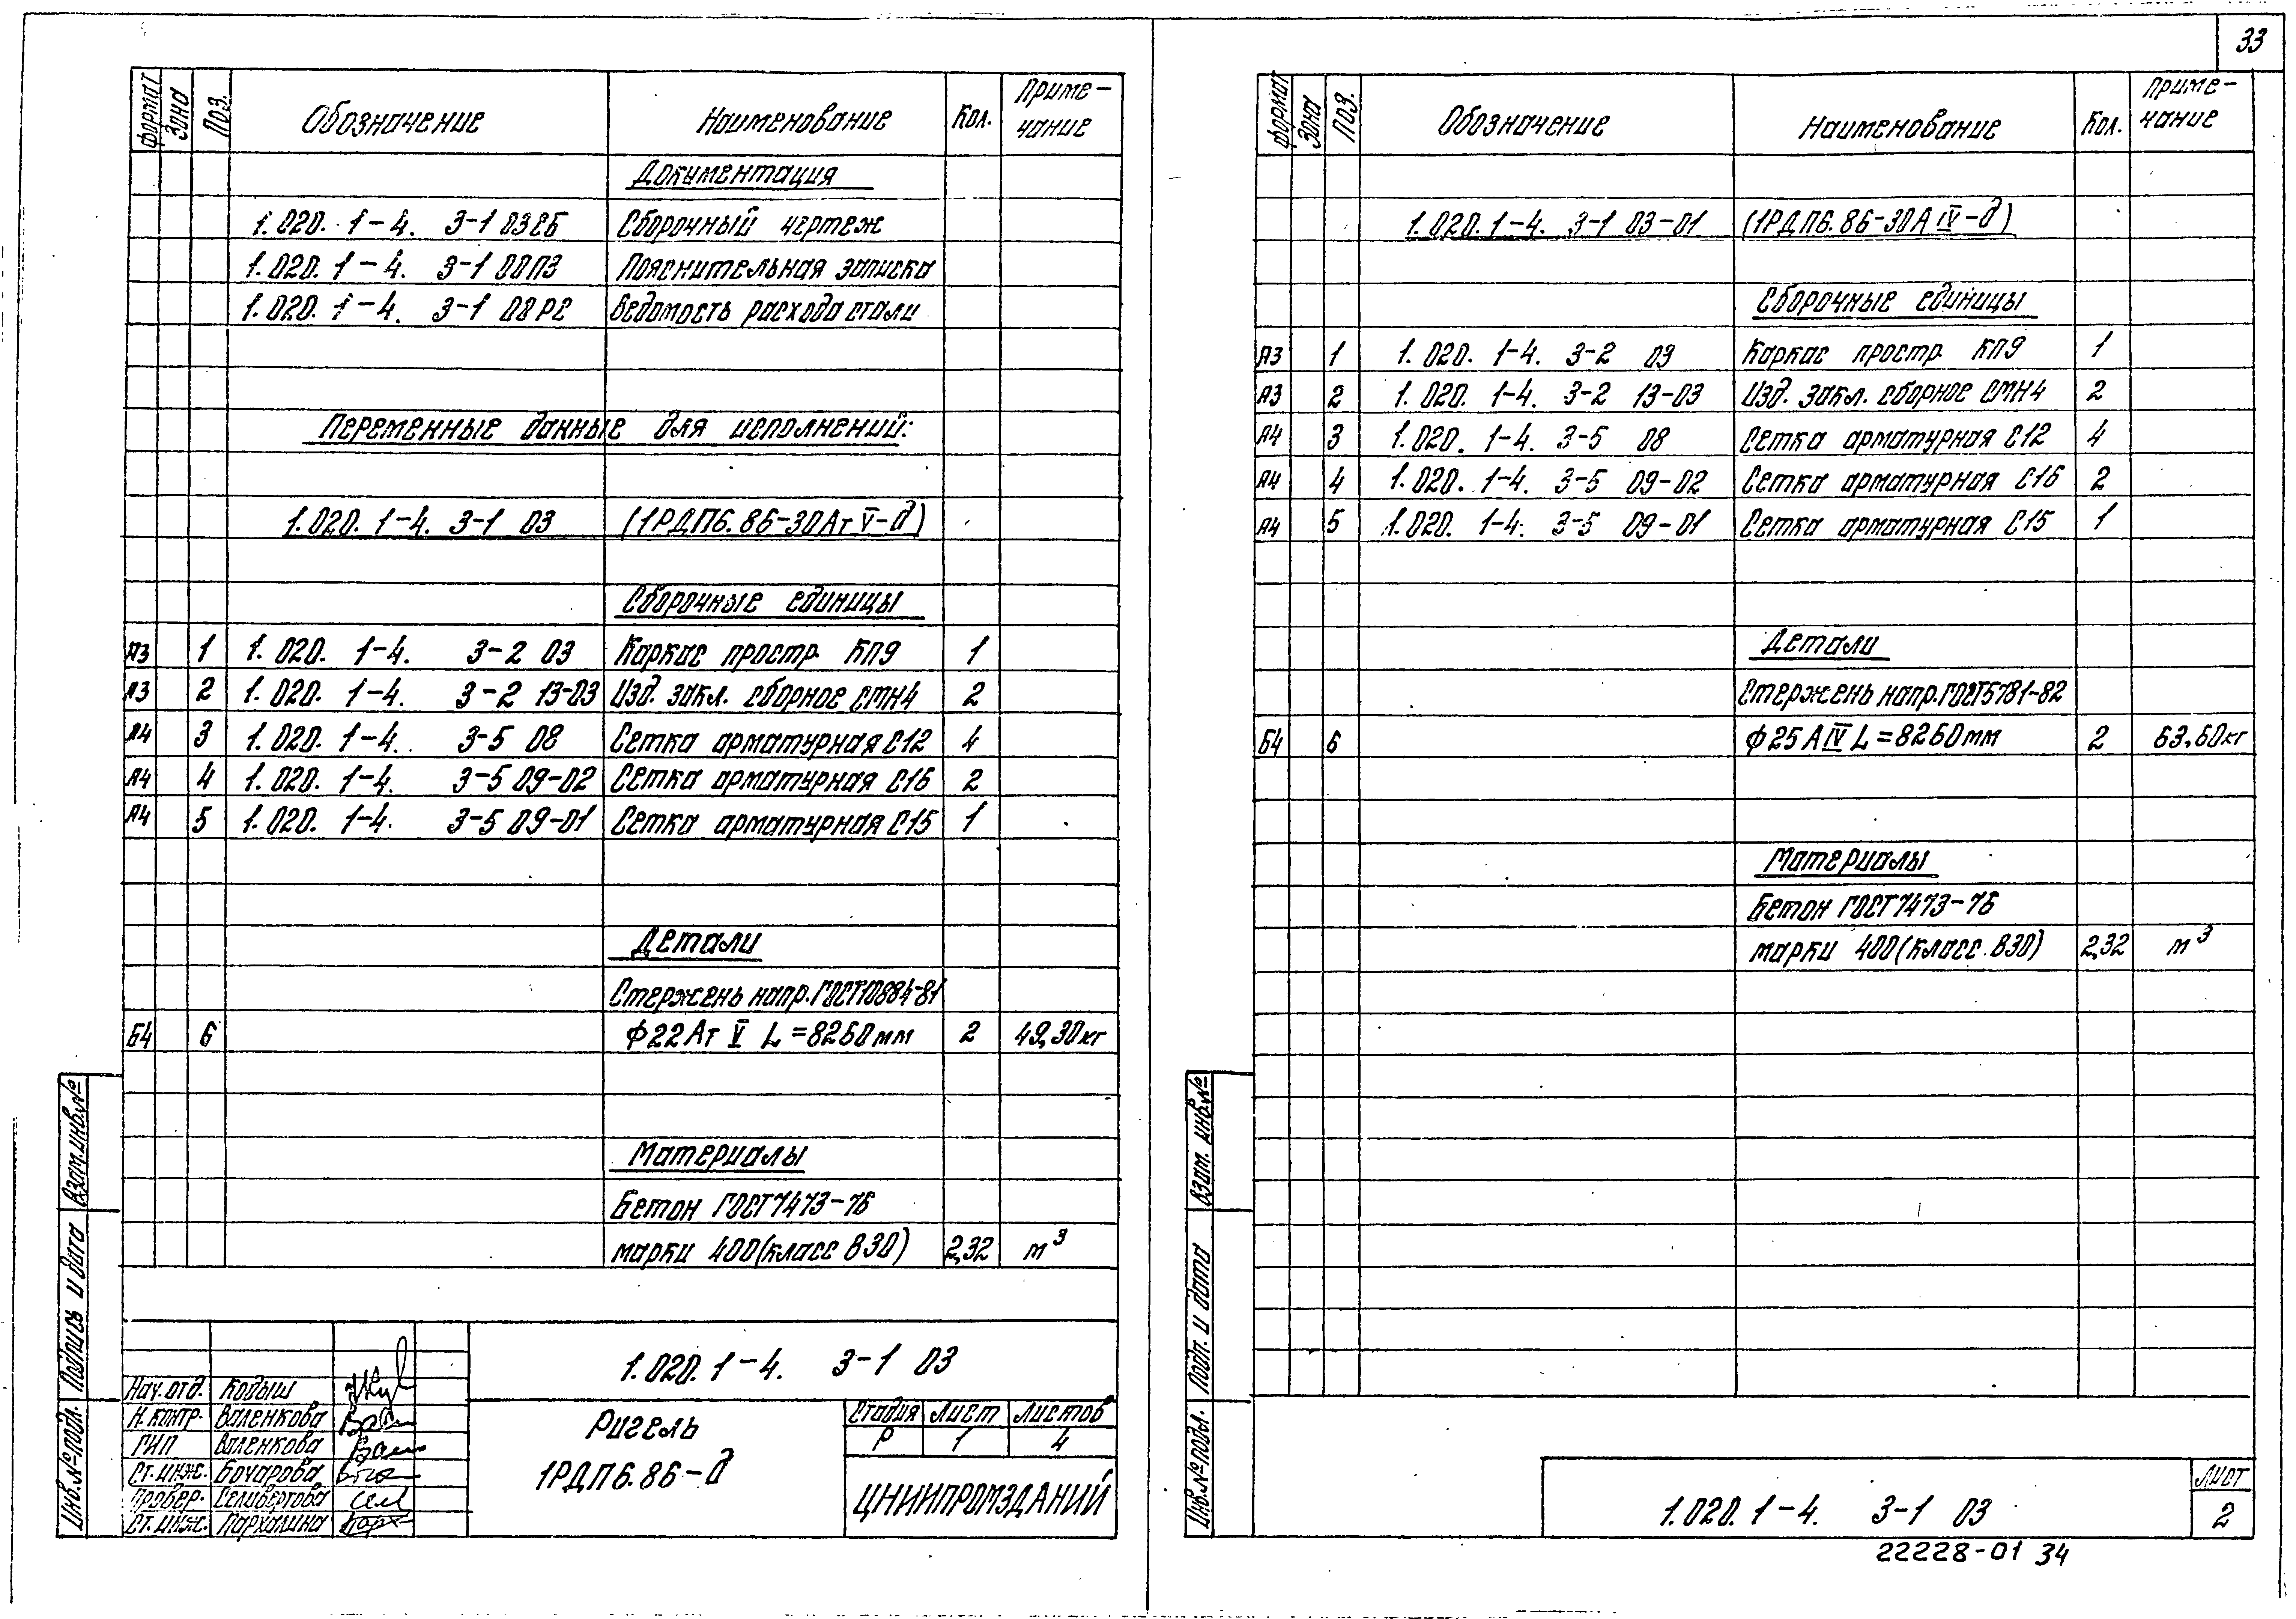 33
формат Зона Поз. Обозначение Наименование Кол. Приме-
чание
Документация
1.020.1-4. 3-1 03СБ Сборочный чертеж
1.020.1-4. 3-1 00ПЗ Пояснительная записка
1.020.1-4. 3-1 08РС Ведомость расхода стали
Переменные данные для исполнений:
1.020.1-4. 3-1 03 (1РДП6.86-30Ат V-д)
Сборочные единицы
А3 1 1.020. 1-4. 3-2 03 Каркас простр. КП9 1
А3 2 1.020. 1-4. 3-2 13-03 Изд. закл. сборное СМН4 2
А4 3 1.020. 1-4. 3-5 08 Сетка арматурная С12 4
А4 4 1.020. 1-4. 3-5 09-02 Сетка арматурная С16 2
А4 5 1.020. 1-4. 3-5 09-01 Сетка арматурная С15 1
Детали
Стержень напр. ГОСТ10884-81
Б4 6 ф22Ат V L=8260мм 2 49,30кг
Материалы
Бетон ГОСТ7473-76
марки 400(класс В30) 2,32 м³
Инв.№подл. Подпись и дата Взам.инв.№
1.020.1-4. 3-1 03
Нач.отд. Кодыш
Н.контр. Валенкова
ГИП Валенкова
Ст.инж. Бочарова
Провер. Селивертова
Ст.инж. Пархалина
Ригель
1РДП6.86-д
Стадия Лист Листов
Р 1 4
ЦНИИПРОМЗДАНИЙ
формат Зона Поз. Обозначение Наименование Кол. Приме-
чание
1.020.1-4. 3-1 03-01 (1РДП6.86-30А IV-д)
Сборочные единицы
А3 1 1.020. 1-4. 3-2 03 Каркас простр. КП9 1
А3 2 1.020. 1-4. 3-2 13-03 Изд. закл. сборное СМН4 2
А4 3 1.020. 1-4. 3-5 08 Сетка арматурная С12 4
А4 4 1.020. 1-4. 3-5 09-02 Сетка арматурная С16 2
А4 5 1.020. 1-4. 3-5 09-01 Сетка арматурная С15 1
Детали
Стержень напр.ГОСТ5781-82
Б4 6 ф25АIV L=8260мм 2 63,60кг
Материалы
Бетон ГОСТ7473-76
марки 400(класс В30) 2,32 м³
Инв.№подл. Подп. и дата Взам. инв.№
1.020.1-4. 3-1 03
Лист
2
22228-01 34